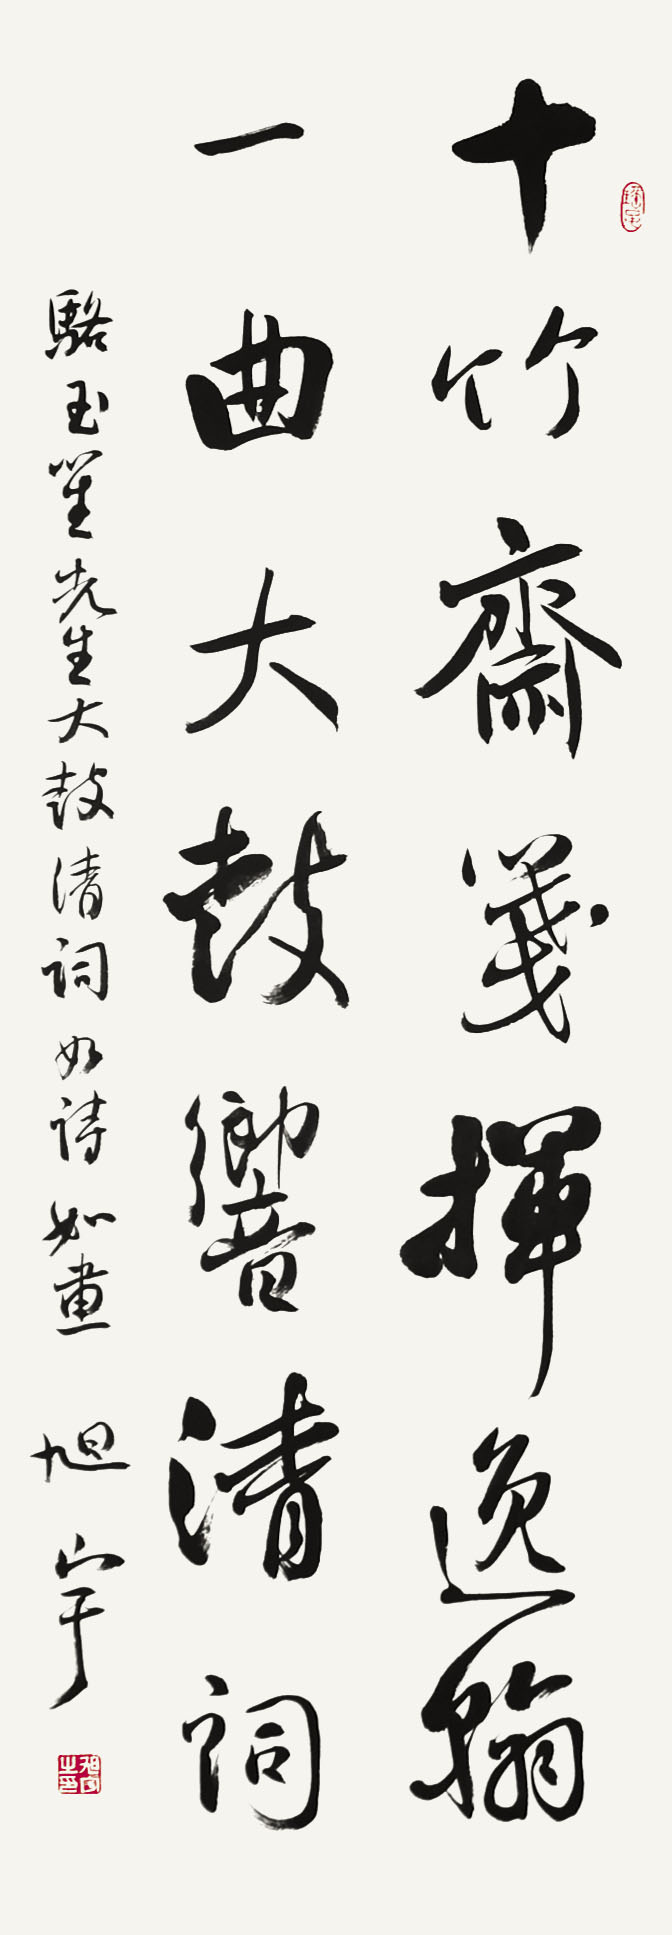 十竹齋箋揮逸翰
一曲大鼓響清詞
駱玉笙先生大鼓清詞如詩如畫 旭宇
旭宇之印